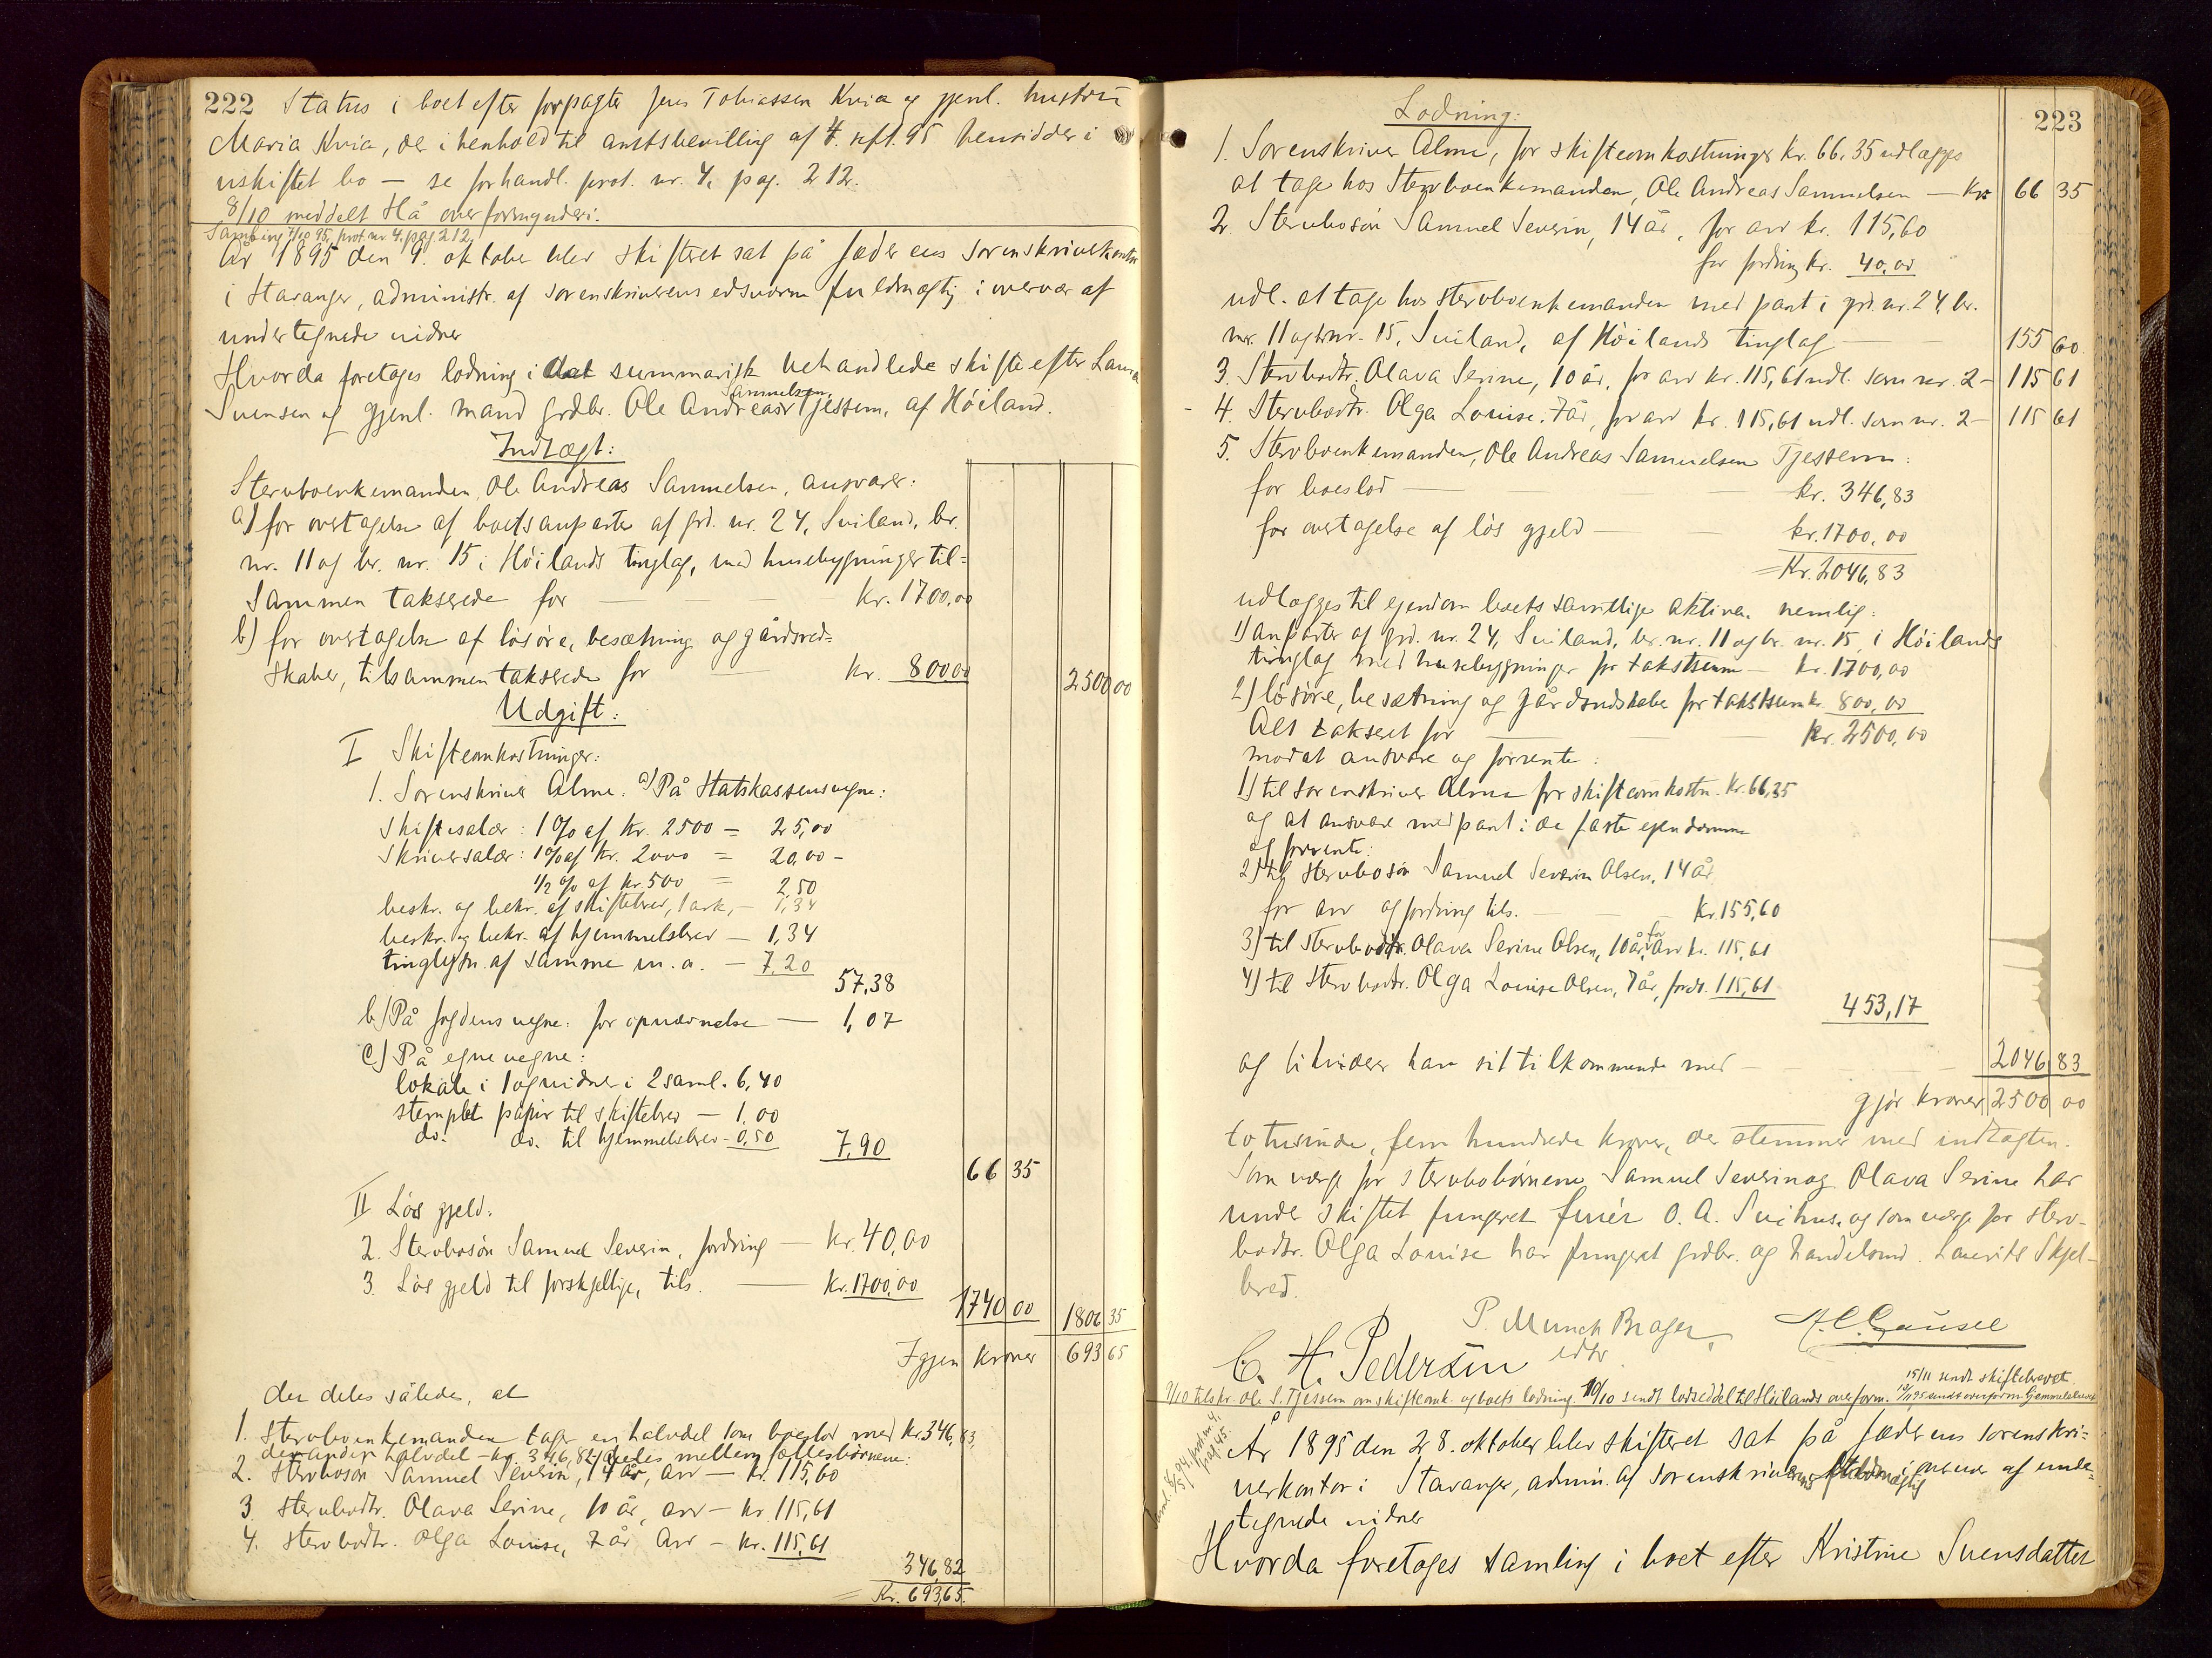 222 Status i boet efter forpagter Jens Tobiassen Kvia og gjenl. hustru
Maria Kvia, der i henhold til amtsbevilling af 4. sept. 95 hensidder i
uskiftet bo — se forhandl. prot. nr. 4, pag. 212.
8/10 meddelt Hå overformynderi.
Samling 7/10 95, prot. nr. 4, pag. 212.
År 1895 den 9. oktober blev skifteret sat på Jæderens sorenskriverkontor
i Stavanger, administr. af sorenskriverens edsvorne fuldmægtig i overvær af
undertegnede vidner
Hvorda foretages lodning i det summarisk behandlede skifte efter Laura
Svensen og gjenl. mand grdbr. Ole Andreas Samuelsen Tjessem, af Høiland.
Indtægt:
Stervboenkemanden, Ole Andreas Samuelsen, ansvarer:
a) for overtagelse af boets anparter af grd. nr. 24, Sviland, br.
nr. 11 og br. nr. 15 i Høilands tinglag, med husebygninger til-
sammen takserede for — kr. 1700,00
b) for overtagelse af løsøre, besætning og gårdsred-
skaber, tilsammen takserede for — kr. 800,00 2500 00
Udgift:
I Skifteomkostninger:
1. Sorenskriver Alme. a) På Statskassens vegne:
Skiftesalær: 1% af kr. 2500 = 25,00
Skriversalær: 1% af kr. 2000 = 20,00 -
1/2 % af kr. 500 = 2,50
beskr. og bekr. af skiftebrev, 1 ark, - 1,34
beskr. og bekr. af hjemmelsbrev — 1,34
tinglysn. af samme m. a. — 7,20
57,38
b) På fogdens vegne: for opnævnelse — 1,07
c) På egne vegne:
lokale i 1 og vidner i 2 saml. 6,40
stemplet papir til skiftebrev — 1,00
do. do. til hjemmelsbrev - 0,50 7,90
66 35
II Løs gjeld.
2. Stervbosøn Samuel Severin, fordring — kr. 40,00
3. Løs gjeld til forskjellige, tils. — kr. 1700,00
1740 00 1806 35
Igjen kroner 693 65
der deles således, at
1. Stervboenkemanden tager en halvdel som boeslod med kr. 346,83,
den anden halvdel - kr. 346,82 deles mellem fællesbørnene:
2. Stervbosøn Samuel Severin, 14 år, arv — kr. 115,60
3. Stervbodtr. Olava Serine, 10 år, arv — kr. 115,61
4. Stervbodtr. Olga Louise, 7 år arv — kr. 115,61
346,82
= Kr. 693,65.
223
Lodning:
1. Sorenskriver Alme, for skifteomkostninger kr. 66,35 udlægges
at tage hos Stervboenkemanden, Ole Andreas Samuelsen — kr. 66 35
2. Stervbosøn Samuel Severin, 14 år, for arv kr. 115,60
for fordring kr. 40,00
udl. at tage hos stervboenkemanden med pant i grd. nr. 24, br.
nr. 11 og br. nr. 15, Sviland, af Høilands tinglag — 155 60
3. Stervbodtr. Olava Serine, 10 år, for arv kr. 115,61 udl. som nr. 2 - 115 61
4. Stervbodtr. Olga Louise, 7 år, for arv kr. 115,61 udl. som nr. 2 - 115 61
5. Stervboenkemanden, Ole Andreas Samuelsen Tjessem:
for boeslod — kr. 346,83
for overtagelse af løs gjeld — kr. 1700,00
= Kr. 2046,83
udlægges til ejendom boets samtlige aktiva, nemlig:
1) anparter af grd. nr. 24, Sviland, br. nr. 11 og br. nr. 15, i Høilands
tinglag med husebygninger for takstsum — kr. 1700,00
2) løsøre, besætning og gårdsredskaber for takstsum kr. 800,00
Alt takseret for — kr. 2500,00
mod at ansvare og forrente:
1) til sorenskriver Alme for skifteomkostn. kr. 66,35
og at ansvare med pant i de faste ejendomme
og forrente:
2) til stervbosøn Samuel Severin Olsen, 14 år
for arv og fordring tils. — kr. 155,60
3) til stervbodtr. Olava Serine Olsen, 10 år, for arv kr. 115,61
4) til stervbodtr. Olga Louise Olsen, 7 år, for do. 115,61
453,17
og beholder han sit tilkommende med — 2046 83
gjør kroner 2500 00
to tusinde, fem hundrede kroner, der stemmer med indtægten.
Som værge for stervbobørnene Samuel Severin og Olava Serine har
under skiftet fungeret furér O. A. Svihus, og som værge for sterv-
bodtr. Olga Louise har fungeret grdbr. og handelsmd. Laurits Skjel-
bred.
P. Munch Brager
edsv.
A. C. Gausel
C. H. Pedersen
15/11 sendt skiftebrevet.
9/10 tilskr. Ole S. Tjessem om skifteomk. og boets lodning. 10/10 sendt lodseddel til Høilands overform.
Saml. 8/5 94, prot. nr. 4, pag. 45.
År 1895 den 28. oktober blev skifteret sat på Jæderens sorenskri-
verkontor i Stavanger, admin. af sorenskriverens fuldmægtig i overvær af under-
tegnede vidner
Hvorda foretages samling i boet efter Kristine Svensdatter